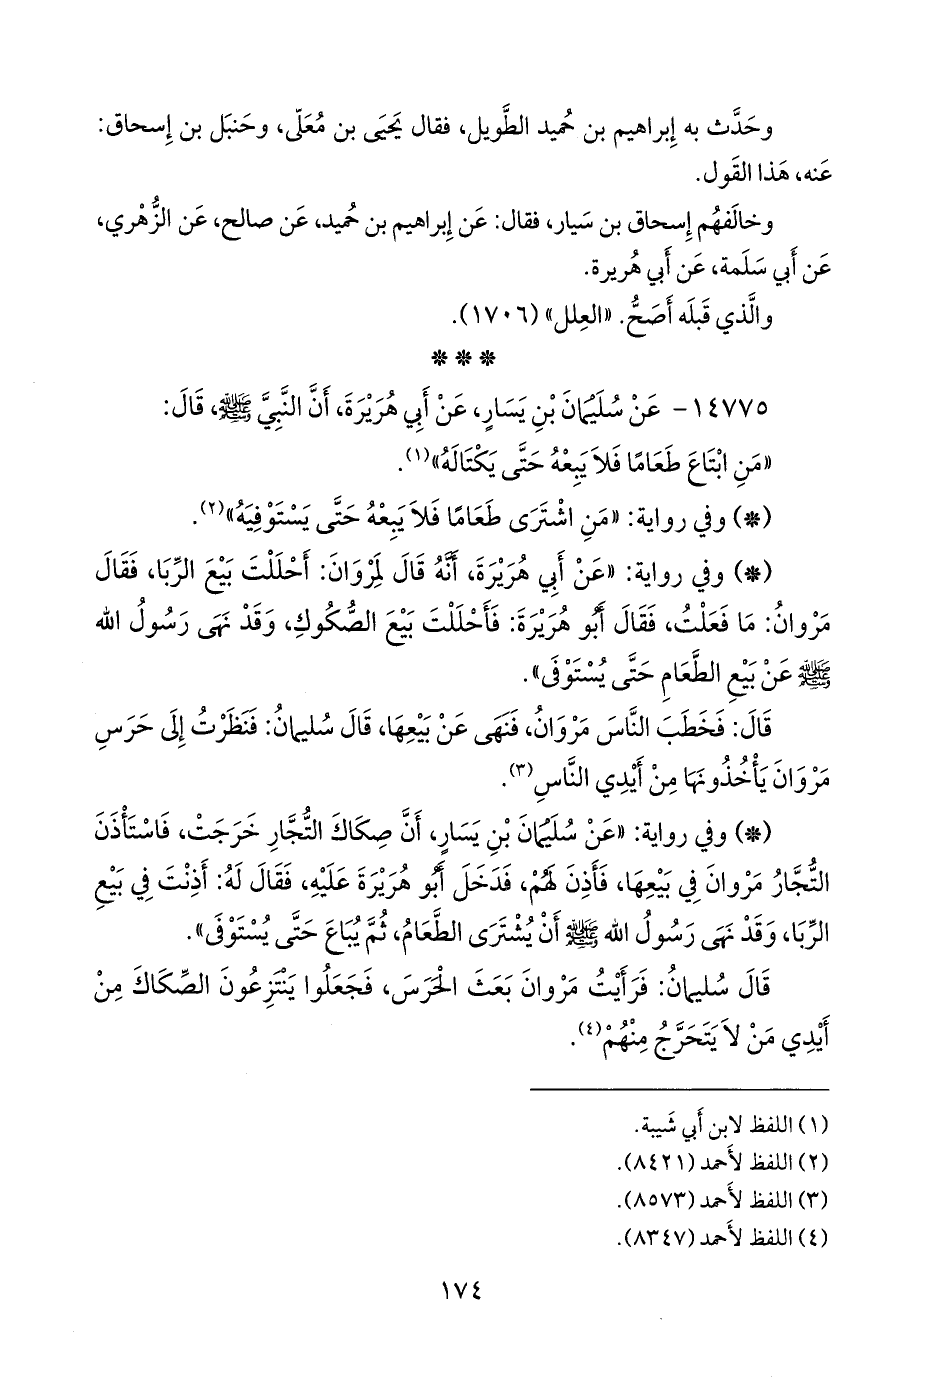 وحَدَّث به إِبراهيم بن حُميد الطَّويل، فقال يَحيَى بن مُعَلّى، وحَنبَل بن إِسحاق:
عَنه، هَذا القَول.
وخالَفهُم إِسحاق بن سَيار، فقال: عَن إِبراهيم بن حُميد، عَن صالح، عَن الزُّهْري،
عَن أَبي سَلَمة، عَن أَبي هُريرة.
والَّذي قَبلَه أَصَحُّ. «العِلل» (١٧٠٦).
* * *
١٤٧٧٥ - عَنْ سُلَيْمَانَ بْنِ يَسَارٍ، عَنْ أَبِي هُرَيْرَةَ، أَنَّ النَّبِيَّ ﷺ، قَالَ:
«مَنِ ابْتَاعَ طَعَامًا فَلاَ يَبِعْهُ حَتَّى يَكْتَالَهُ»(١).
(*) وفي رواية: «مَنِ اشْتَرَى طَعَامًا فَلاَ يَبِعْهُ حَتَّى يَسْتَوْفِيَهُ»(٢).
(*) وفي رواية: «عَنْ أَبِي هُرَيْرَةَ، أَنَّهُ قَالَ لِمَرْوَانَ: أَحْلَلْتَ بَيْعَ الرِّبَا، فَقَالَ
مَرْوَانُ: مَا فَعَلْتُ، فَقَالَ أَبُو هُرَيْرَةَ: فَأَحْلَلْتَ بَيْعَ الصُّكُوكِ، وَقَدْ نَهَى رَسُولُ الله
ﷺ عَنْ بَيْعِ الطَّعَامِ حَتَّى يُسْتَوْفَى».
قَالَ: فَخَطَبَ النَّاسَ مَرْوَانُ، فَنَهَى عَنْ بَيْعِهَا، قَالَ سُليمانُ: فَنَظَرْتُ إِلَى حَرَسِ
مَرْوَانَ يَأْخُذُونَهَا مِنْ أَيْدِي النَّاسِ(٣).
(*) وفي رواية: «عَنْ سُلَيْمَانَ بْنِ يَسَارٍ، أَنَّ صِكَاكَ التُّجَّارِ خَرَجَتْ، فَاسْتَأْذَنَ
التُّجَّارُ مَرْوَانَ فِي بَيْعِهَا، فَأَذِنَ لَهُمْ، فَدَخَلَ أَبُو هُرَيْرَةَ عَلَيْهِ، فَقَالَ لَهُ: أَذِنْتَ فِي بَيْعِ
الرِّبَا، وَقَدْ نَهَى رَسُولُ الله ﷺ أَنْ يُشْتَرَى الطَّعَامُ، ثُمَّ يُبَاعَ حَتَّى يُسْتَوْفَى».
قَالَ سُليمانُ: فَرَأَيْتُ مَرْوَانَ بَعَثَ الْحَرَسَ، فَجَعَلُوا يَنْتَزِعُونَ الصِّكَاكَ مِنْ
أَيْدِي مَنْ لاَ يَتَحَرَّجُ مِنْهُمْ(٤).
(١) اللفظ لابن أَبي شَيبة.
(٢) اللفظ لأَحمد (٨٤٢١).
(٣) اللفظ لأَحمد (٨٥٧٣).
(٤) اللفظ لأَحمد (٨٣٤٧).
١٧٤